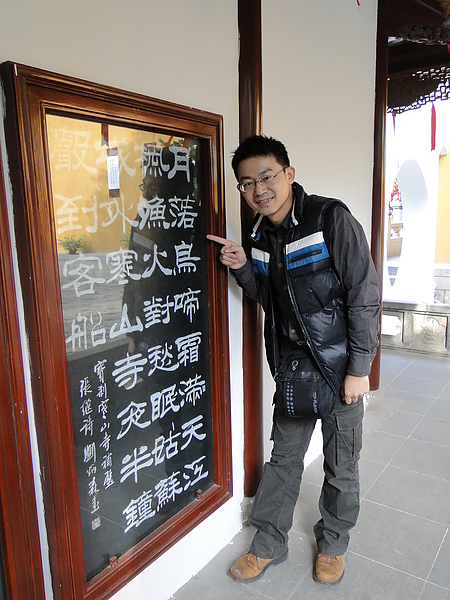 月落烏啼霜滿天江
楓漁火對愁眠姑蘇
城外寒山寺夜半鐘
聲到客船
寶刹寒山寺補壁
張繼詩 劉炳森書